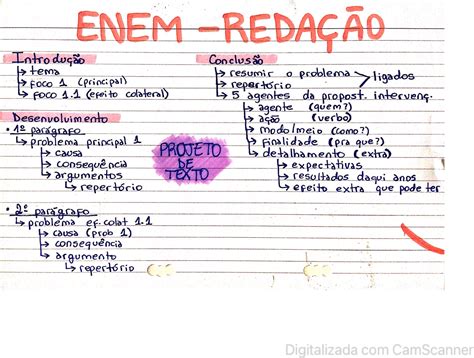 ENEM - REDAÇÃO
Introdução
↳ tema
↳ foco 1 (principal)
↳ foco 1.1 (efeito colateral)
Desenvolvimento
• 1º parágrafo
↳ problema principal 1
↳ causa
↳ consequência
↳ argumentos
↳ repertório
• 2º parágrafo
↳ problema ef. colat 1.1
↳ causa (prob 1)
↳ consequência
↳ argumento
↳ repertório
PROJETO
DE
TEXTO
Conclusão
↳ resumir o problema
↳ repertório
ligados
↳ 5 agentes da propost. intervenç.
↳ agente (quem?)
↳ ação (verbo)
↳ modo/meio (como?)
↳ finalidade (pra que?)
↳ detalhamento (extra)
↳ expectativas
↳ resultados daqui anos
↳ efeito extra que pode ter
Digitalizada com CamScanner